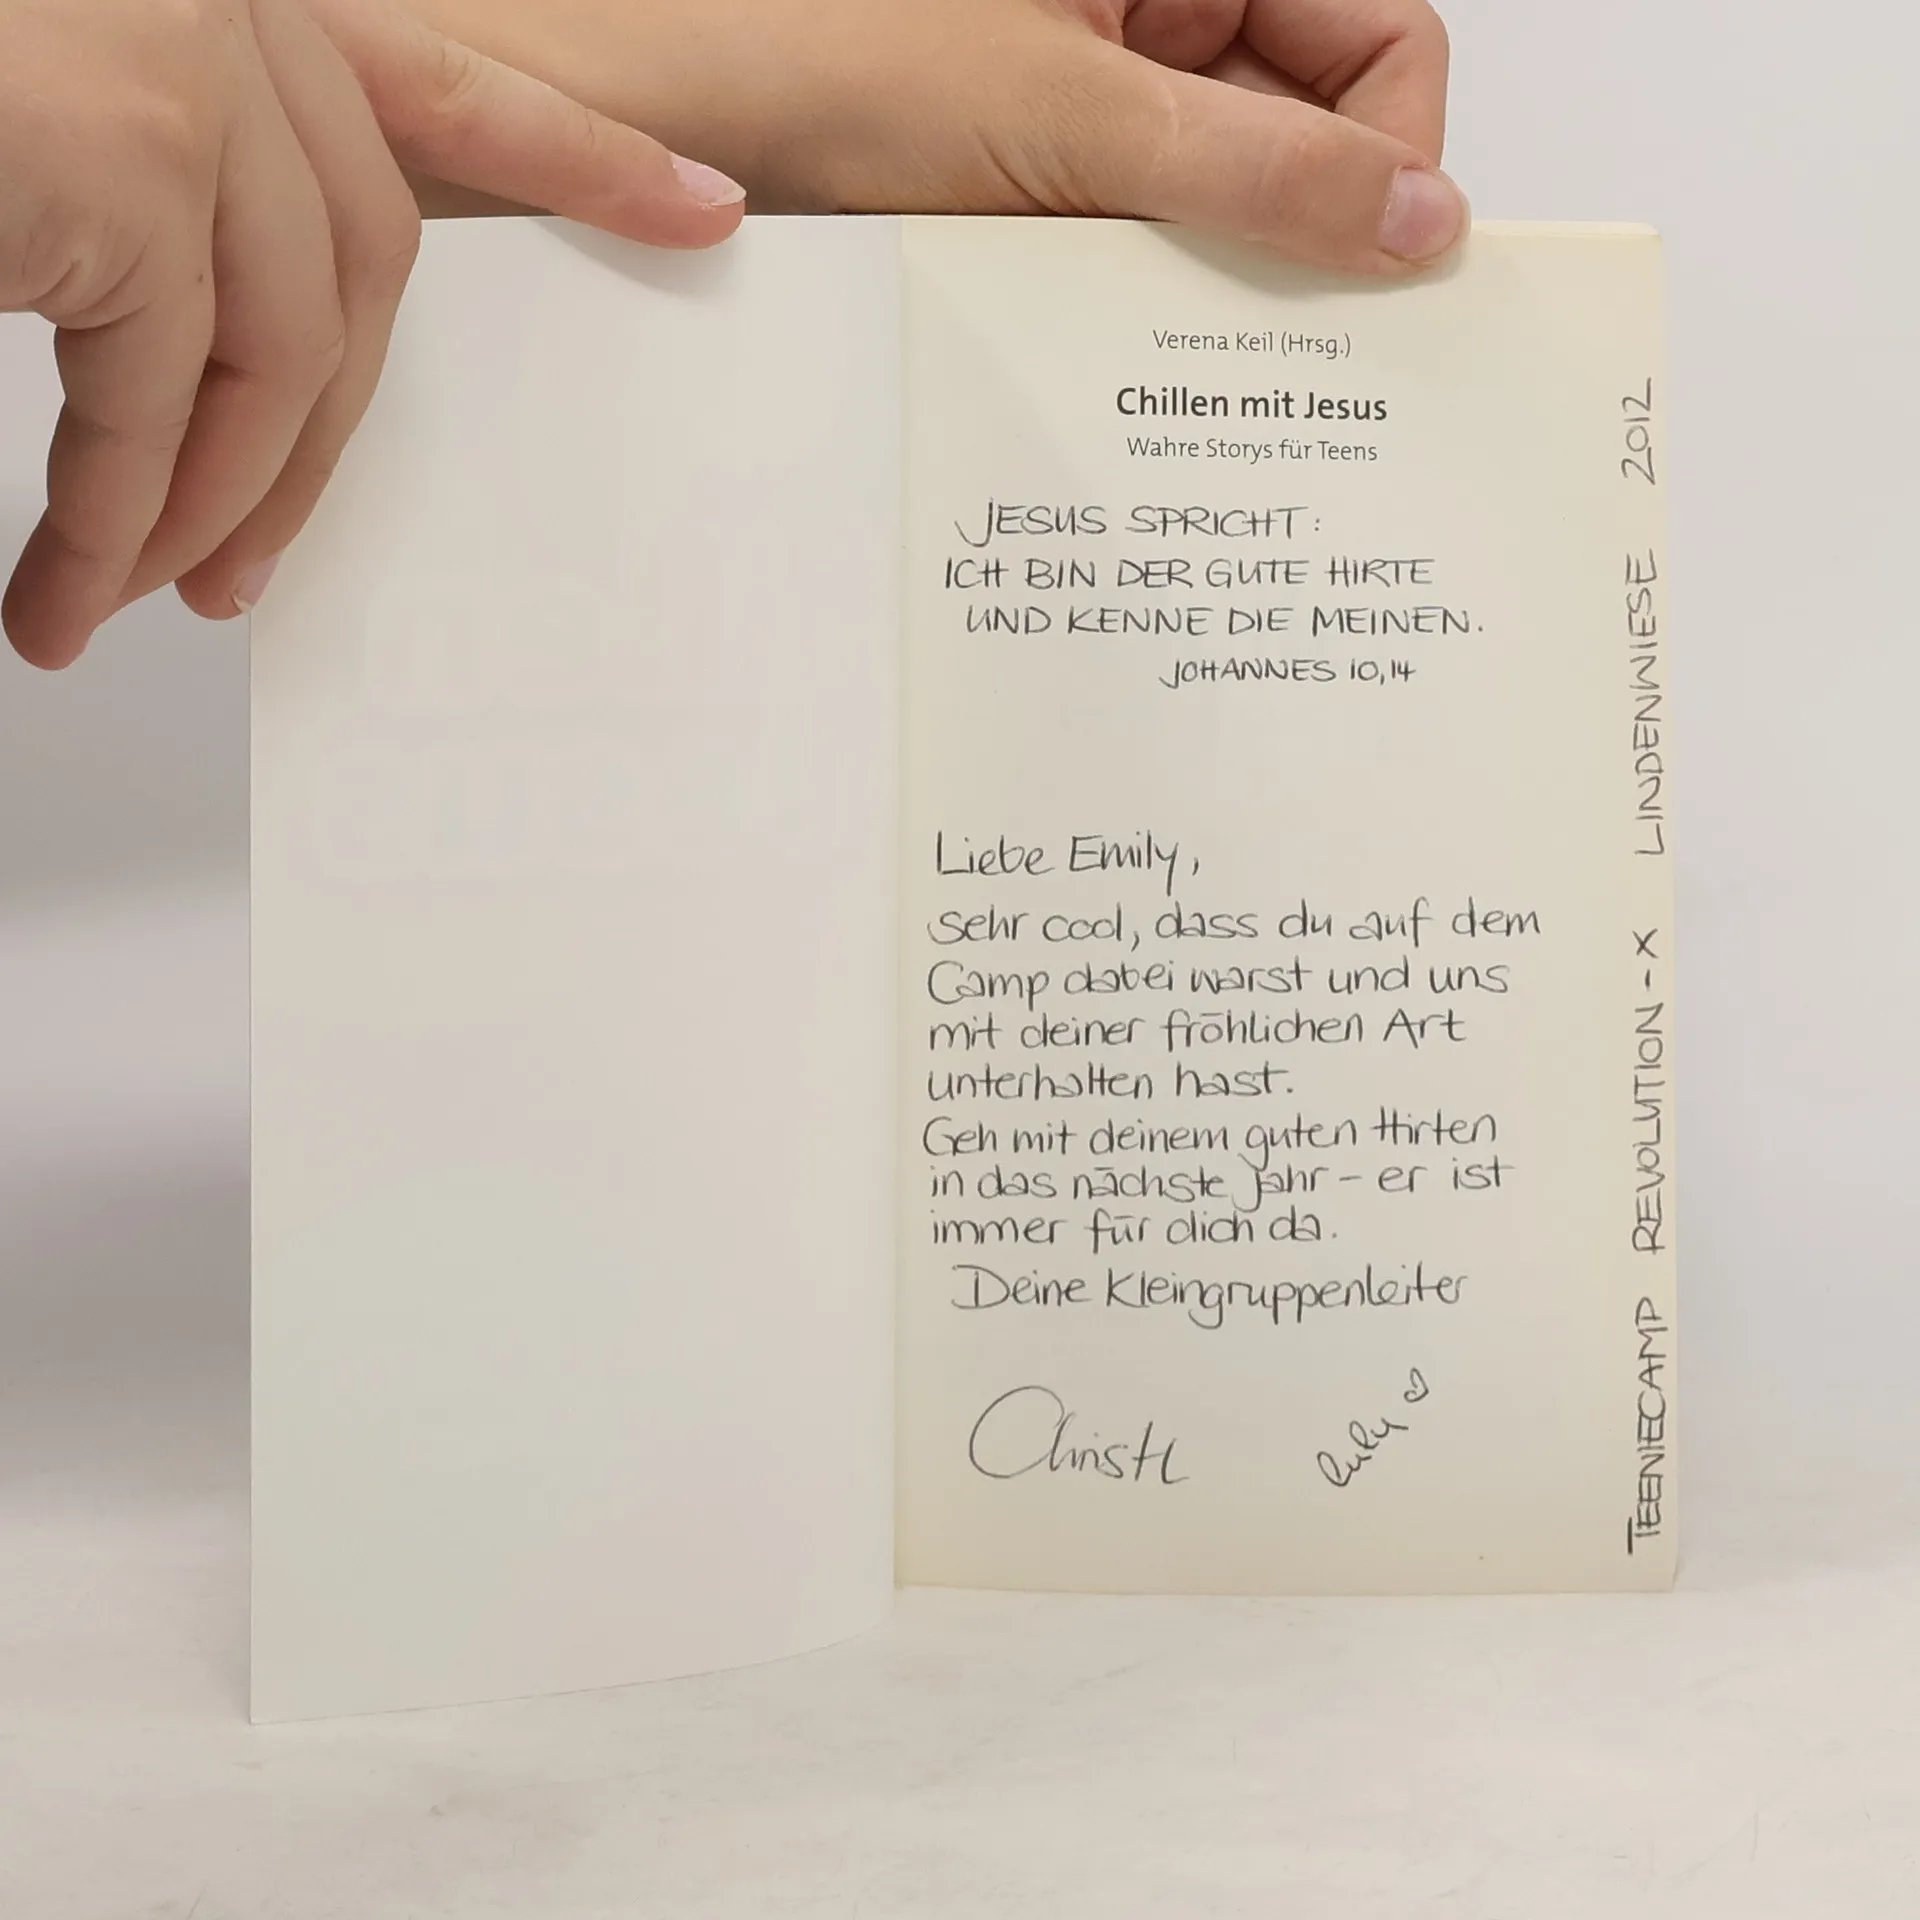 Verena Keil (Hrsg.)
Chillen mit Jesus
Wahre Storys für Teens
JESUS SPRICHT:
ICH BIN DER GUTE HIRTE
UND KENNE DIE MEINEN.
JOHANNES 10,14
Liebe Emily,
sehr cool, dass du auf dem
Camp dabei warst und uns
mit deiner fröhlichen Art
unterhalten hast.
Geh mit deinem guten Hirten
in das nächste Jahr – er ist
immer für dich da.
Deine Kleingruppenleiter
TEENIECAMP REVOLUTION-X LINDENWIESE 2012